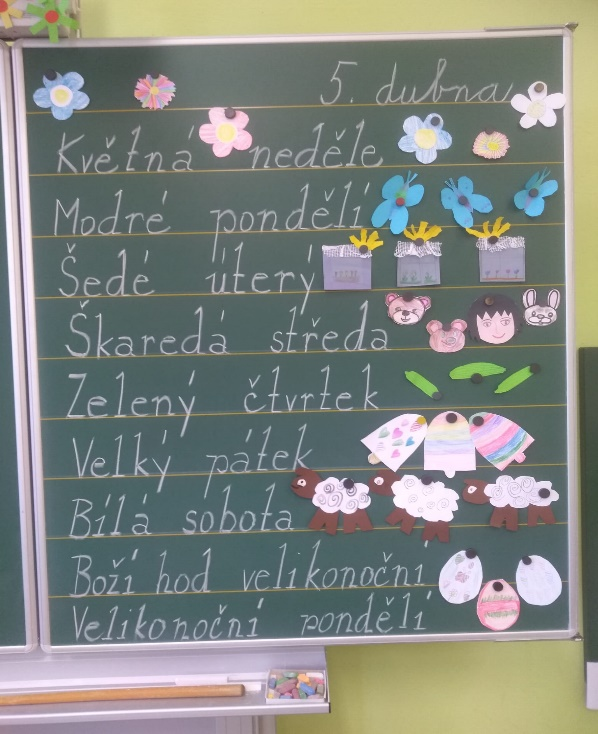 5. dubna
Květná neděle
Modré pondělí
Šedé úterý
Škaredá středa
Zelený čtvrtek
Velký pátek
Bílá sobota
Boží hod velikonoční
Velikonoční pondělí